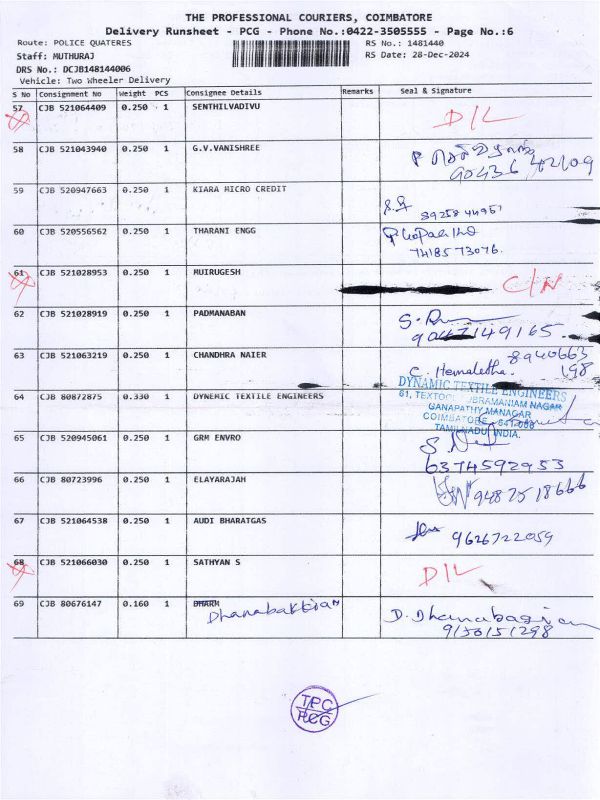 THE PROFESSIONAL COURIERS, COIMBATORE
Delivery Runsheet - PCG - Phone No.:0422-3505555 - Page No.:6
Route: POLICE QUATERES RS No.: 1481440
Staff: MUTHURAJ RS Date: 28-Dec-2024
DRS No.: DCJB148144006
Vehicle: Two Wheeler Delivery
S No Consignment No Weight PCS Consignee Details Remarks Seal & Signature
57 CJB 521064409 0.250 1 SENTHILVADIVU D/L
58 CJB 521043940 0.250 1 G.V.VANISHREE
90436 42109
59 CJB 520947663 0.250 1 KIARA MICRO CREDIT
89258 44951
60 CJB 520556562 0.250 1 THARANI ENGG
7418573076.
61 CJB 521028953 0.250 1 MUIRUGESH C/N
62 CJB 521028919 0.250 1 PADMANABAN
9047149165.
63 CJB 521063219 0.250 1 CHANDHRA NAIER 8940663
C. Hemaletha. 198
64 CJB 80872875 0.330 1 DYNEMIC TEXTILE ENGINEERS DYNAMIC TEXTILE ENGINEERS
61, TEXTOOL SUBRAMANIAM NAGAR
GANAPATHY MANAGAR
COIMBATORE - 641 006
TAMILNADU, INDIA.
65 CJB 520945061 0.250 1 GRM ENVRO
6374592953
66 CJB 80723996 0.250 1 ELAYARAJAH 9487518666
67 CJB 521064538 0.250 1 AUDI BHARATGAS 9626722059
68 CJB 521066030 0.250 1 SATHYAN S D/L
69 CJB 80676147 0.160 1 DHARM D. Dhanabagian
Dhanabakkian 9150151298
TPC
PCG